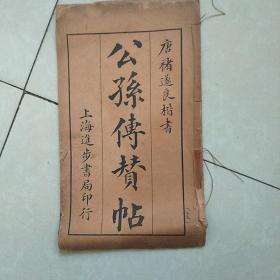 唐褚遂良楷書
公孫傳贊帖
上海進步書局印行